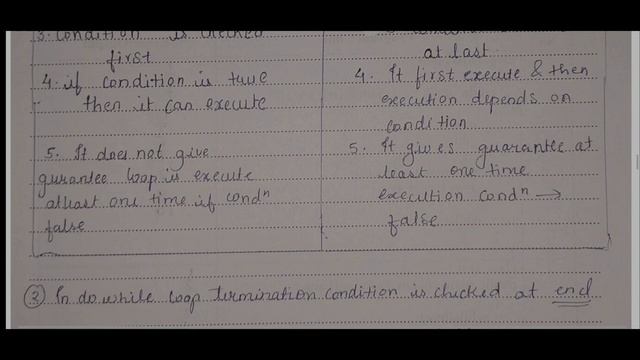 3. Condition is checked
first
at last
4. if condition is true
then it can execute
4. It first execute & then
execution depends on
condition
5. It does not give
gurantee loop is execute
atleast one time if condⁿ
false
5. It gives guarantee at
least one time
execution condⁿ →
false
② In do while loop termination condition is checked at end